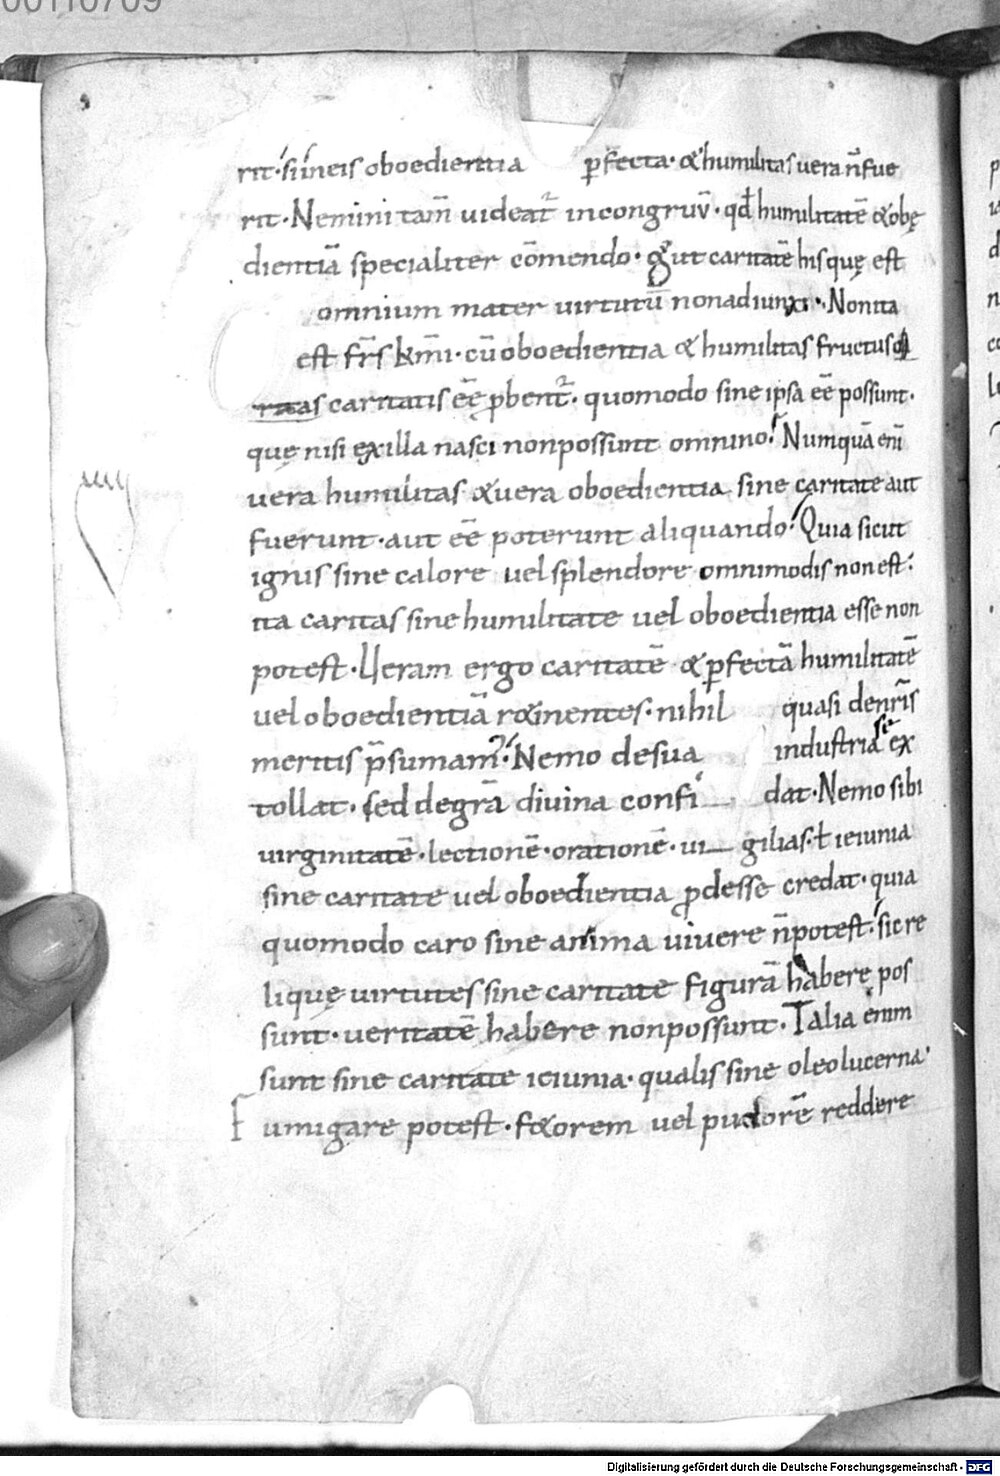 rit·si in eis oboedientia perfecta· & humilitas uera n̄ fue
rit· Nemini tam̄ uideat᷑ incongruū· qd̄ humilitatē & obę
dientiā specialiter cōmendo· & ut caritatē his quę est
omnium mater uirtutū non adiunxi·. Non ita
est fr̄s km̄i· cū oboedientia & humilitas fructus
caritatis eē ꝓbent᷑· quomodo sine ipsa eē possunt·
quę nisi ex illa nasci non possunt omnino? Numquā eni
uera humilitas & uera oboedientia sine caritate aut
fuerunt· aut eē poterunt aliquando? Quia sicut
ignis sine calore uel splendore omnimodis non est:
ita caritas sine humilitate uel oboedientia esse non
potest· Ueram ergo caritatē & ꝑfectā humilitatē
uel oboedientiā r&inentes· nihil quasi de nr̄is
meritis p̄sumam᷒: Nemo de sua industria se ex
tollat· sed de gr̄a diuina confi dat· Nemo sibi
uirginitatē· lectionē· orationē· ui gilias· ł ieiunia
sine caritate uel oboedientia ꝓdesse credat· quia
quomodo caro sine anima uiuere n̄ potest: sic re
liquę uirtutes sine caritate figurā habere pos
sunt· ueritatē habere non possunt· Talia enim
sunt sine caritate ieiunia· qualis sine oleo lucerna·
Fumigare potest· f&orem uel pudorē reddere
Digitalisierung gefördert durch die Deutsche Forschungsgemeinschaft - DFG